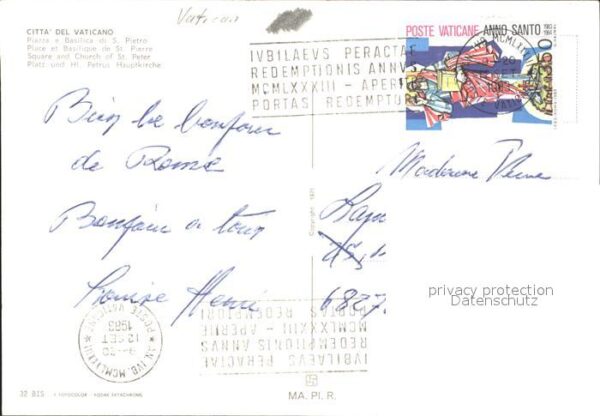 Vatican
CITTA' DEL VATICANO
Piazza e Basilica di S. Pietro
Place et Basilique de St. Pierre
Square and Church of St. Peter
Platz und Hl. Petrus Hauptkirche.
IVBILAEVS PERACTAE
REDEMPTIONIS ANNVS
MCMLXXXIII - APERI
PORTAS REDEMPTO
POSTE VATICANE ANNO SANTO
Bien le bonjour
de Rome
Bonjour a tous
Louise Henri
Madame
6827
Copyright 1971
privacy protection
Datenschutz
AN. IVB. MCMLXXXIII
12 SET
1983
POSTE VATICANE
IVBILAEVS PERACTAE
REDEMPTIONIS ANNVS
MCMLXXXIII - APERITE
PORTAS REDEMPTORI
32 BIS
FOTOCOLOR - KODAK EKTACHROME
MA. PI. R.